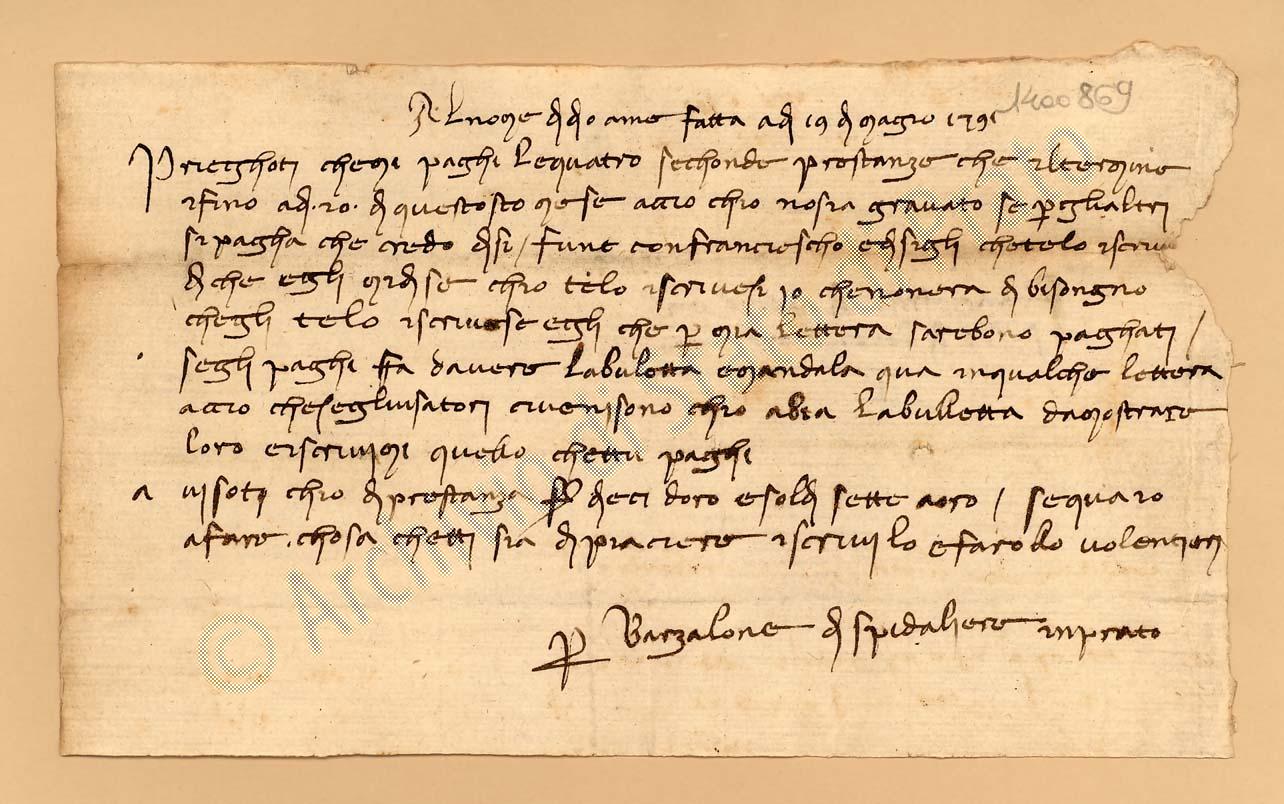 Al nome di dio ame fatta adi 19 di magio 1391
1400869
Prieghoti chemi paghi le quatro sechonde prestanze che il termine
ifino adi 20 di questosto mese accio chio nosia gravato se per glialtri
si pagha che credo di si / funi con franciescho e disigli chotelo iscri
di che egli mi disse chio telo iscrivesi io chenonera di bisongno
chegli telo iscrivese egli che per mia lettera sarebono paghati /
segli paghi fa davere la buletta e mandala qua inqualche lettera
accio chese gluisatori civenisono chio abia la bulletta damostrare
loro e iscrivimi quello chettu paghi
avisoti chio di prestanza f dieci doro e soldi sette aoro / se qua io
a fare chosa chetti sia di piaciere iscrivilo e farollo volentieri
per Barzalone di spidaliere in prato
© Archivio di Stato di Prato